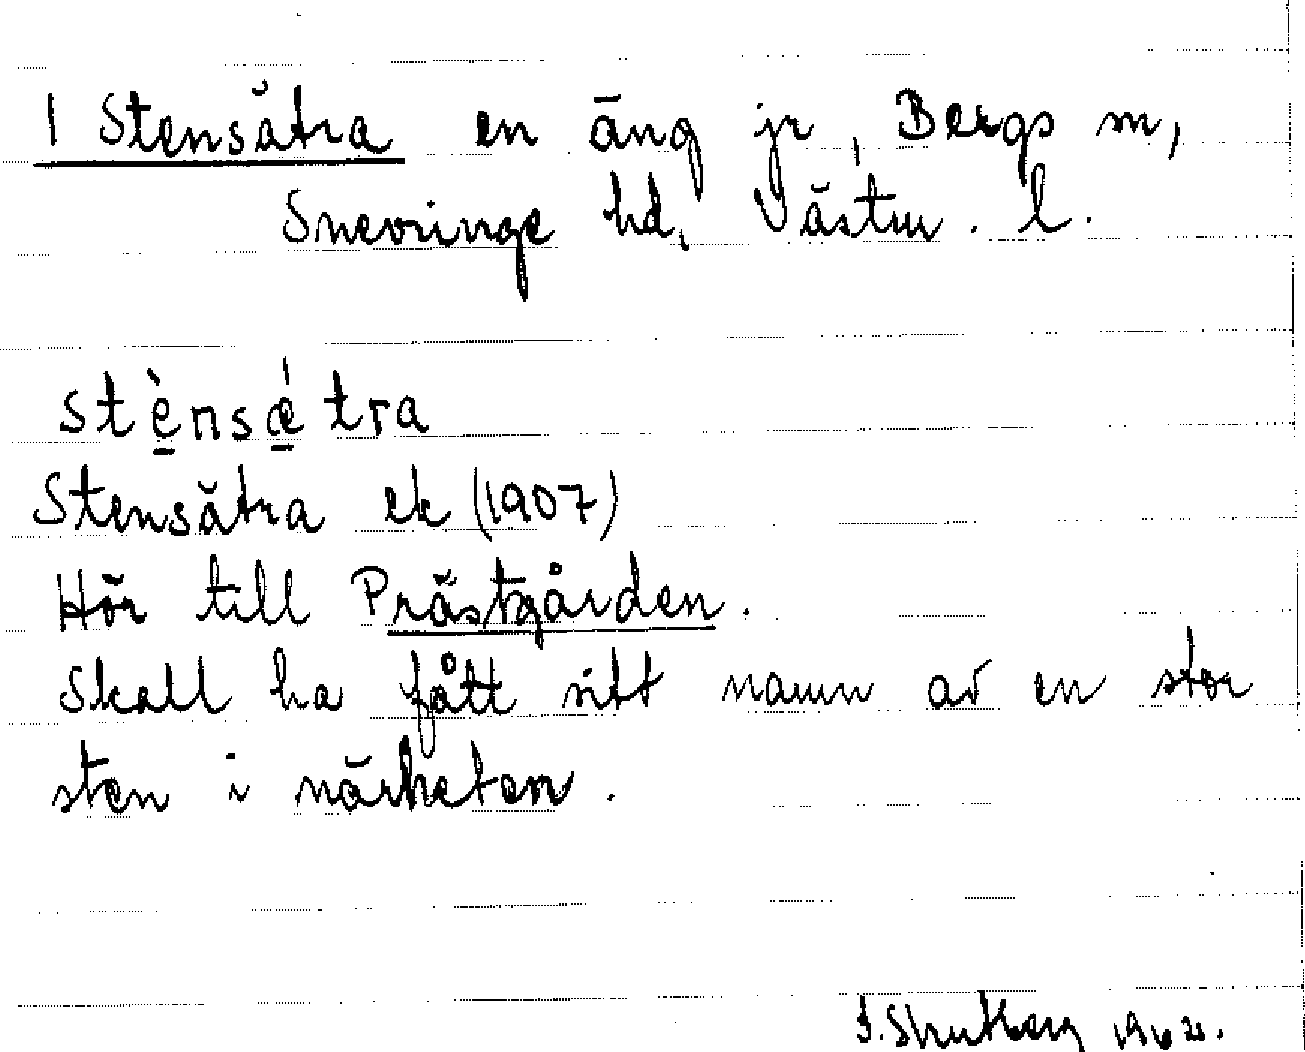 1 Stensätra en äng jr, Bergs sn,
Snevringe hd, Västm. l.
stènsǽtra
Stensätra ek (1907)
Hör till Prästgården.
Skall ha fått sitt namn av en stor
sten i närheten.